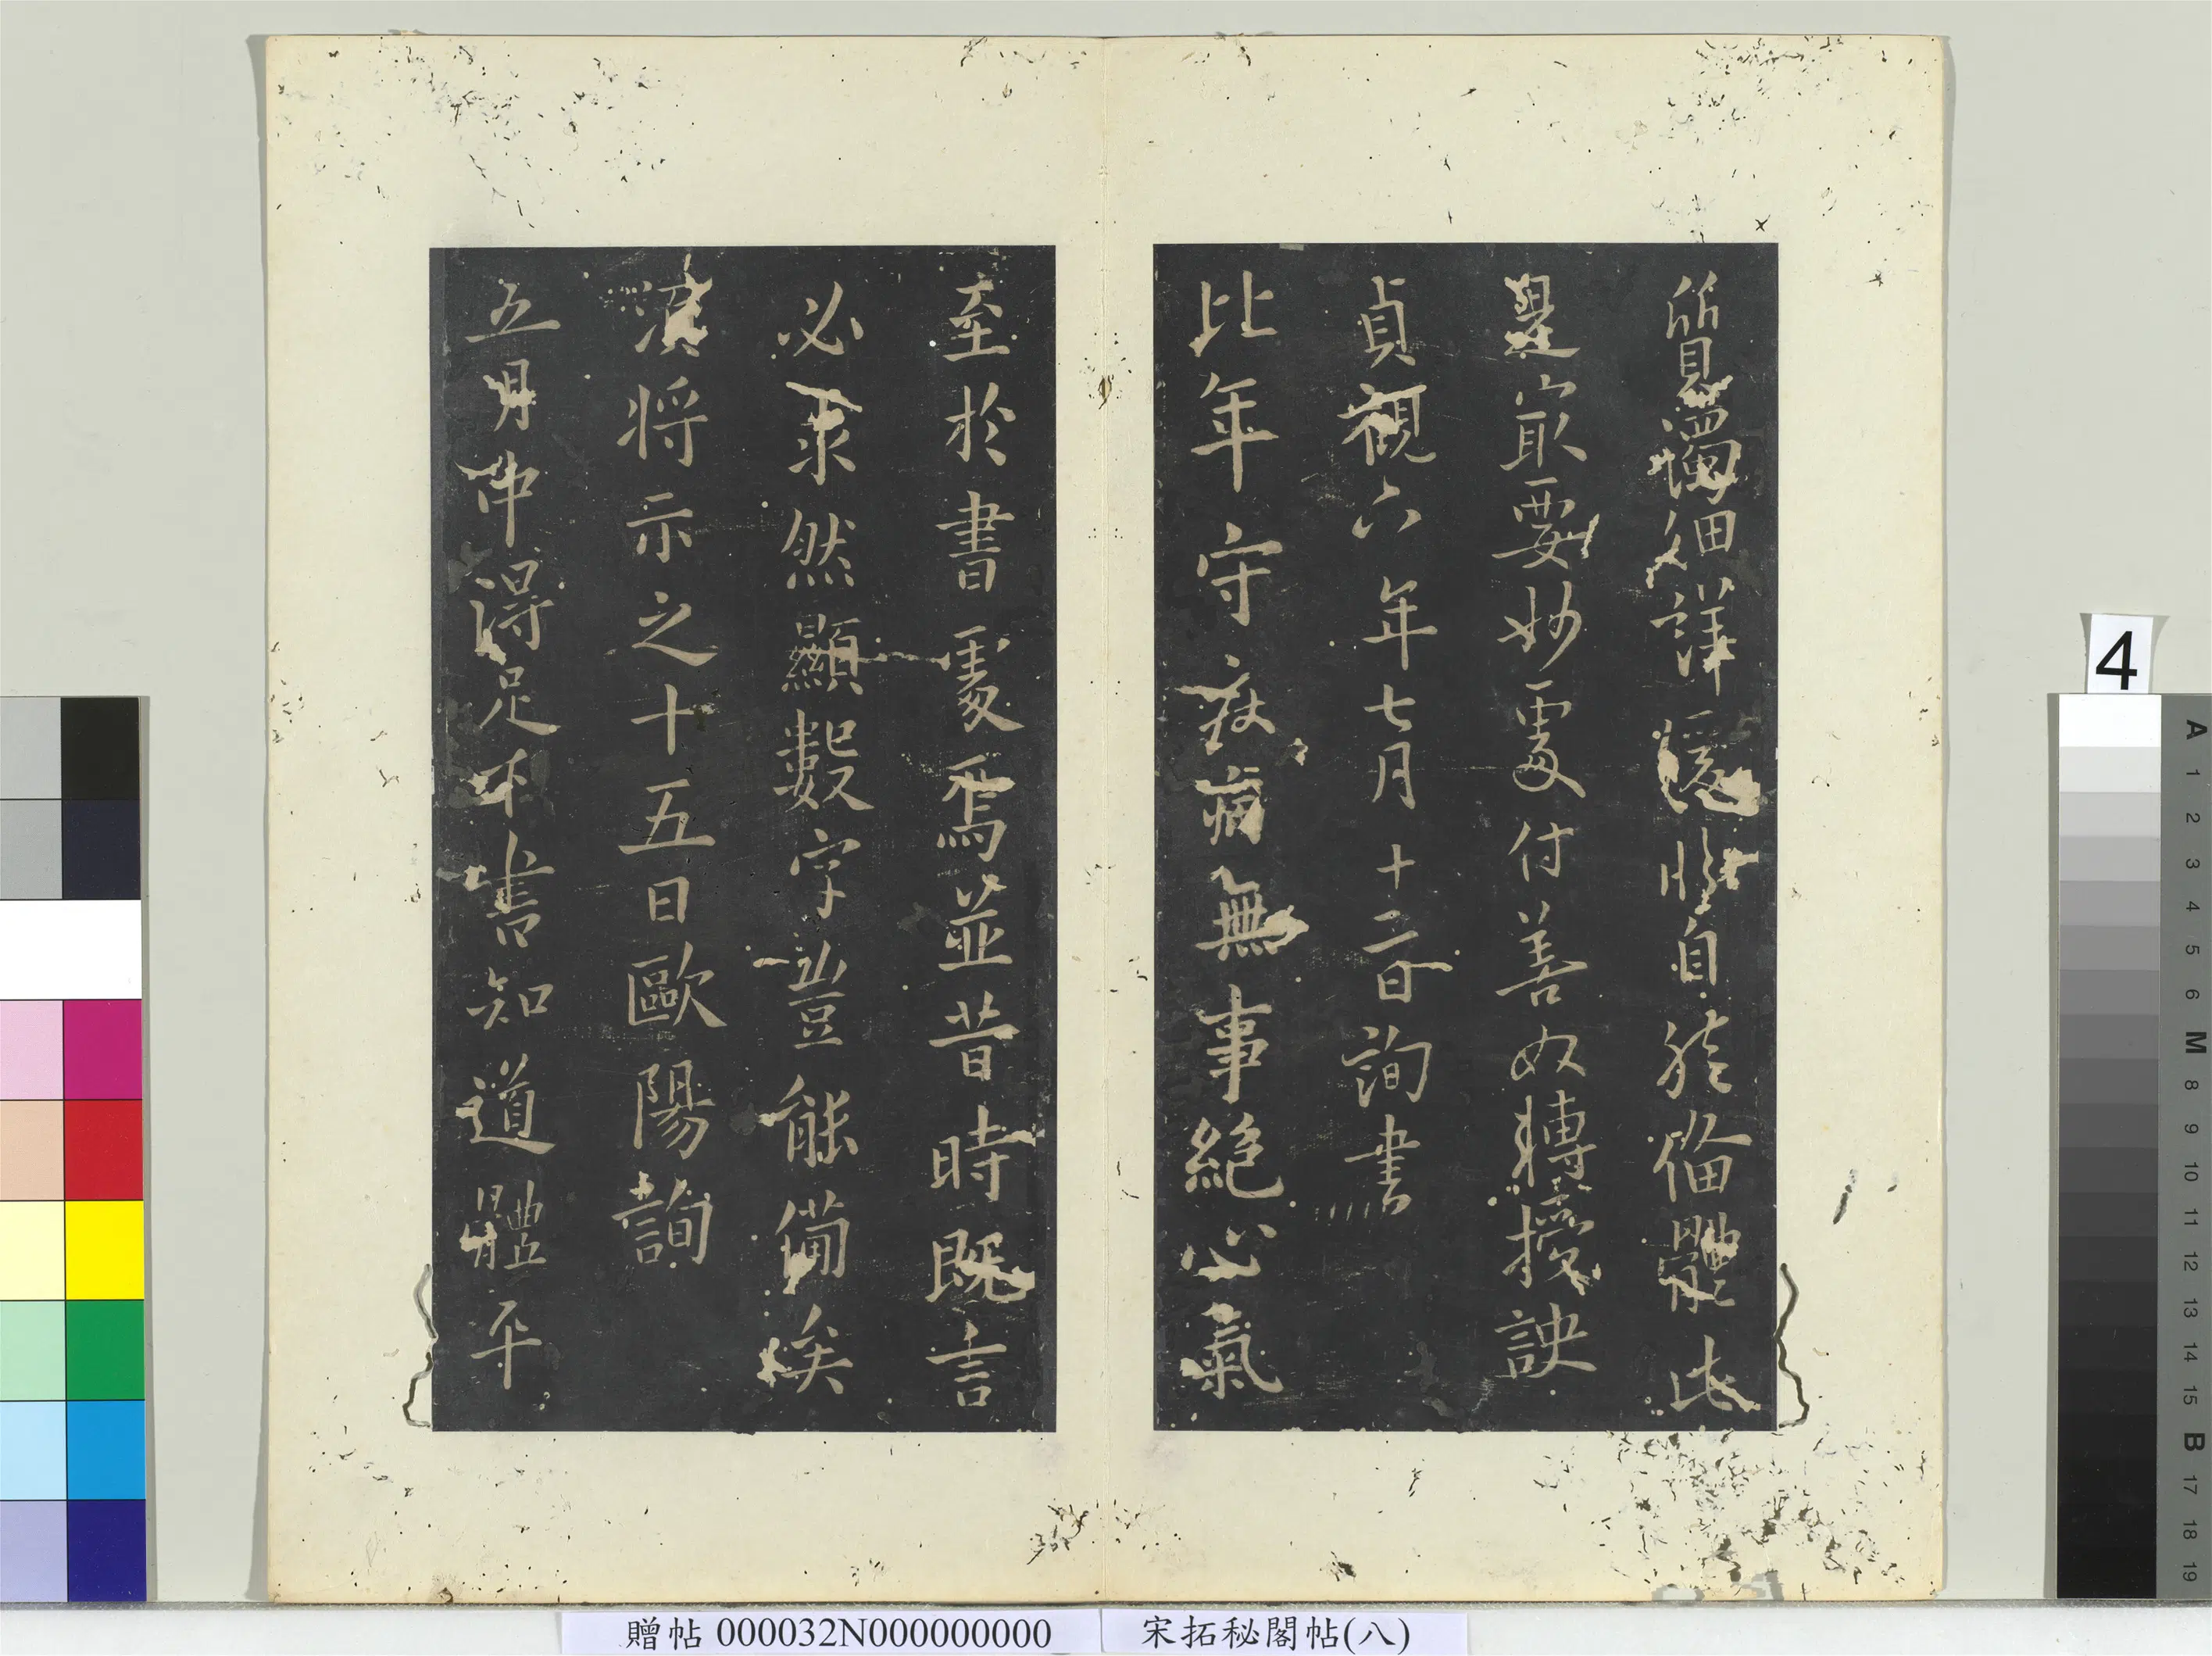 質濁細詳緩臨自然備體此
是最要妙處付善奴轉授訣
貞觀六年七月十二日詢書
比年守疾病無事絕心氣
至於書處焉並昔時既言
必承然顯數字豈能備矣
須將示之十五日歐陽詢
五月中得足下書知道體平
4
A 1 2 3 4 5 6 M 8 9 10 11 12 13 14 15 B 17 18 19
贈帖 000032N000000000
宋拓秘閣帖(八)